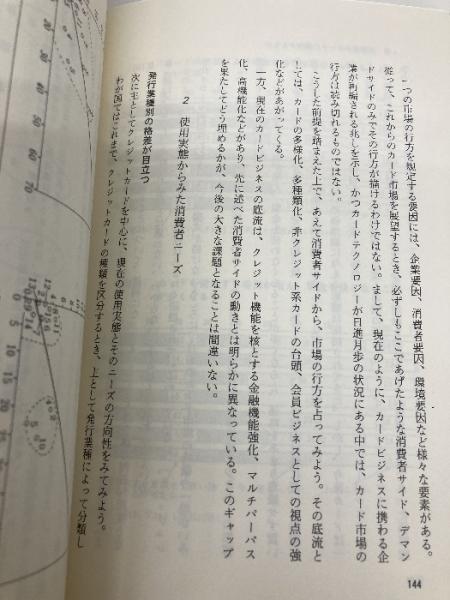 一つの市場の行方を規定する要因には、企業要因、消費者要因、環境要因など様々な要素がある。
従って、これからのカード市場を展望するとき、必ずしもここであげたような消費者サイド、デマン
ドサイドのみでその行方が描けるわけではない。まして、現在のように、カードビジネスに携わる企
業が再編される兆しを示し、かつカードテクノロジーが日進月歩の状況にある中では、カード市場の
行方は読み切れるものではない。
こうした前提を踏まえた上で、あえて消費者サイドから、市場の行方を占ってみよう。その底流と
しては、カードの多様化、多種類化、非クレジット系カードの台頭、会員ビジネスとしての視点の強
化などがあがってくる。
一方、現在のカードビジネスの底流は、クレジット機能を核とする金融機能強化、マルチパーパス
化、高機能化などがあり、先に述べた消費者サイドの動きとは明らかに異なっている。このギャップ
を果たしてどう埋めるかが、今後の大きな課題となることは間違いない。
2 使用実態からみた消費者ニーズ
発行業種別の格差が目立つ
次に主としてクレジットカードを中心に、現在の使用実態とそのニーズの方向性をみてみよう。
わが国ではこれまで、クレジットカードの種類を区分するとき、主として発行業種によって分類し
144